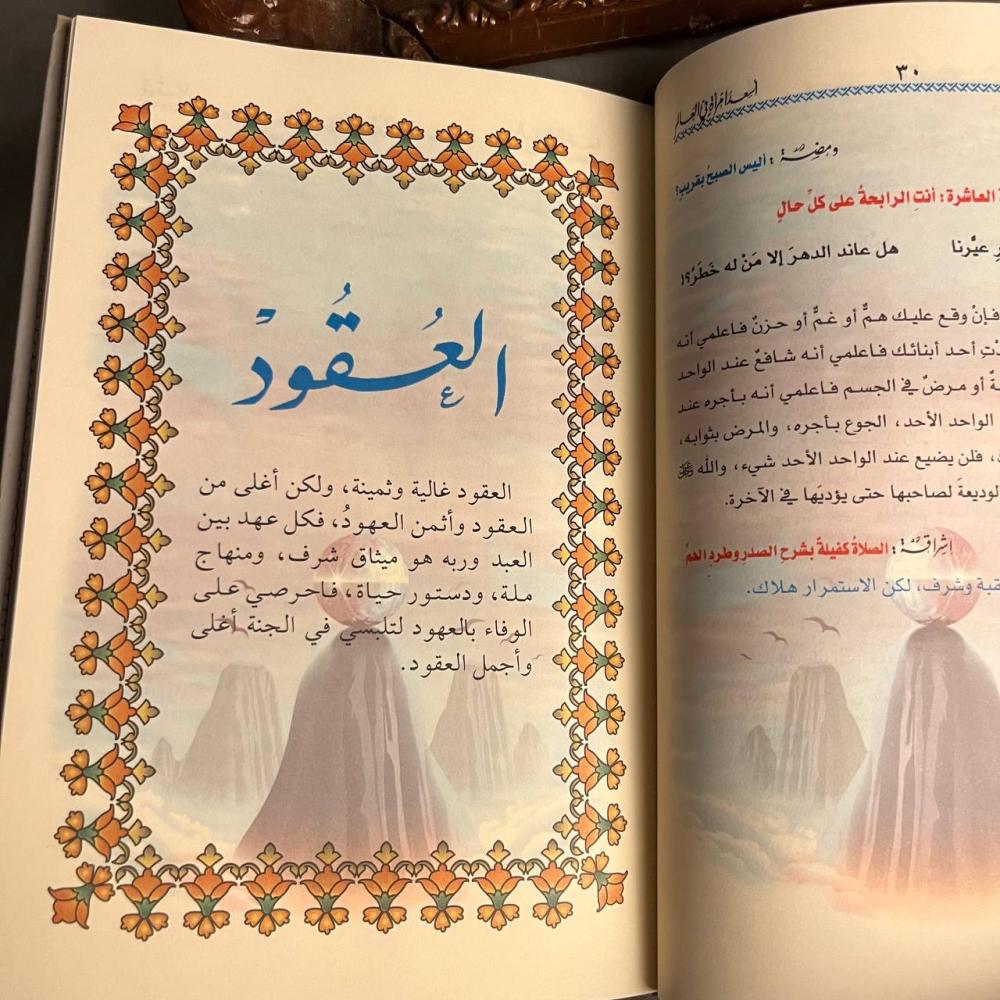 العُقُودْ
العقود غالية وثمينة، ولكن أغلى من
العقود وأثمن العهودُ، فكل عهد بين
العبد وربه هو ميثاق شرف، ومنهاج
ملة، ودستور حياة، فاحرصي على
الوفاء بالعهود لتلبسي في الجنة أغلى
وأجمل العقود.
٣٠
أسعد امرأة في العالم
ومضة: أليس الصبحُ بقريبٍ؟
العاشرة: أنتِ الرابحةُ على كلِّ حالٍ
عيَّرنا هل عاند الدهرَ إلا مَنْ له خَطَرُ؟!
فإنْ وقع عليك همٌّ أو غمٌّ أو حزنٌ فاعلمي أنه
أحد أبنائك فاعلمي أنه شافعٌ عند الواحد
أو مرضٌ في الجسم فاعلمي أنه بأجره عند
الواحد الأحد، الجوع بأجره، والمرض بثوابه،
فلن يضيع عند الواحد الأحد شيء، والله ﷻ
الوديعةَ لصاحبها حتى يؤديَها في الآخرة.
إشراقة: الصلاةُ كفيلةٌ بشرحِ الصدرِ وطردِ الهمِّ
وشرف، لكن الاستمرار هلاك.